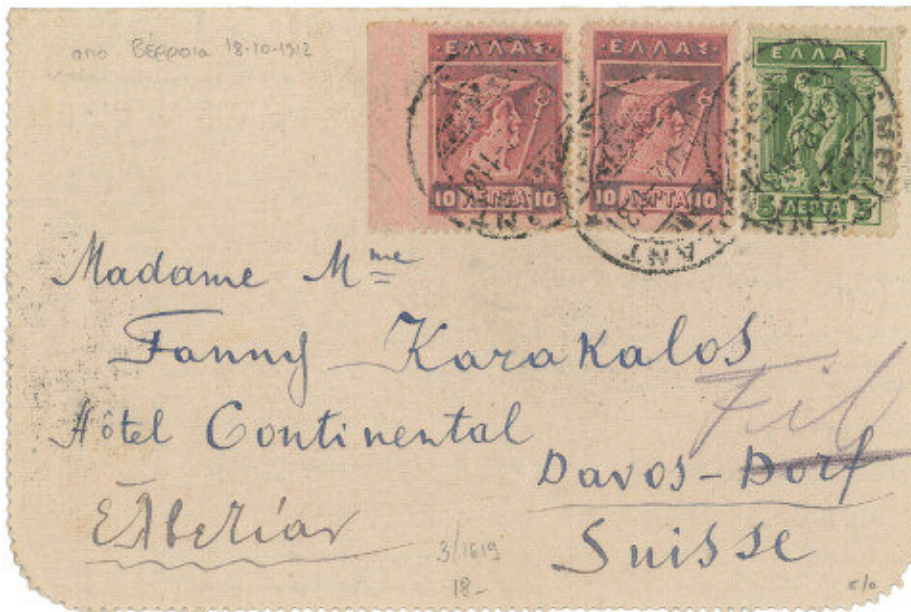 απο Βέρροια 18-10-1912
ΕΛΛΑΣ ΕΛΛΑΣ ΕΛΛΑΣ
10 ΛΕΠΤΑ 10 10 ΛΕΠΤΑ 10 5 ΛΕΠΤΑ 5
Madame Mme
Fanny Karakalos
Hôtel Continental
Davos-Dorf
Ελβετίαν
Suisse
3/1619
18-